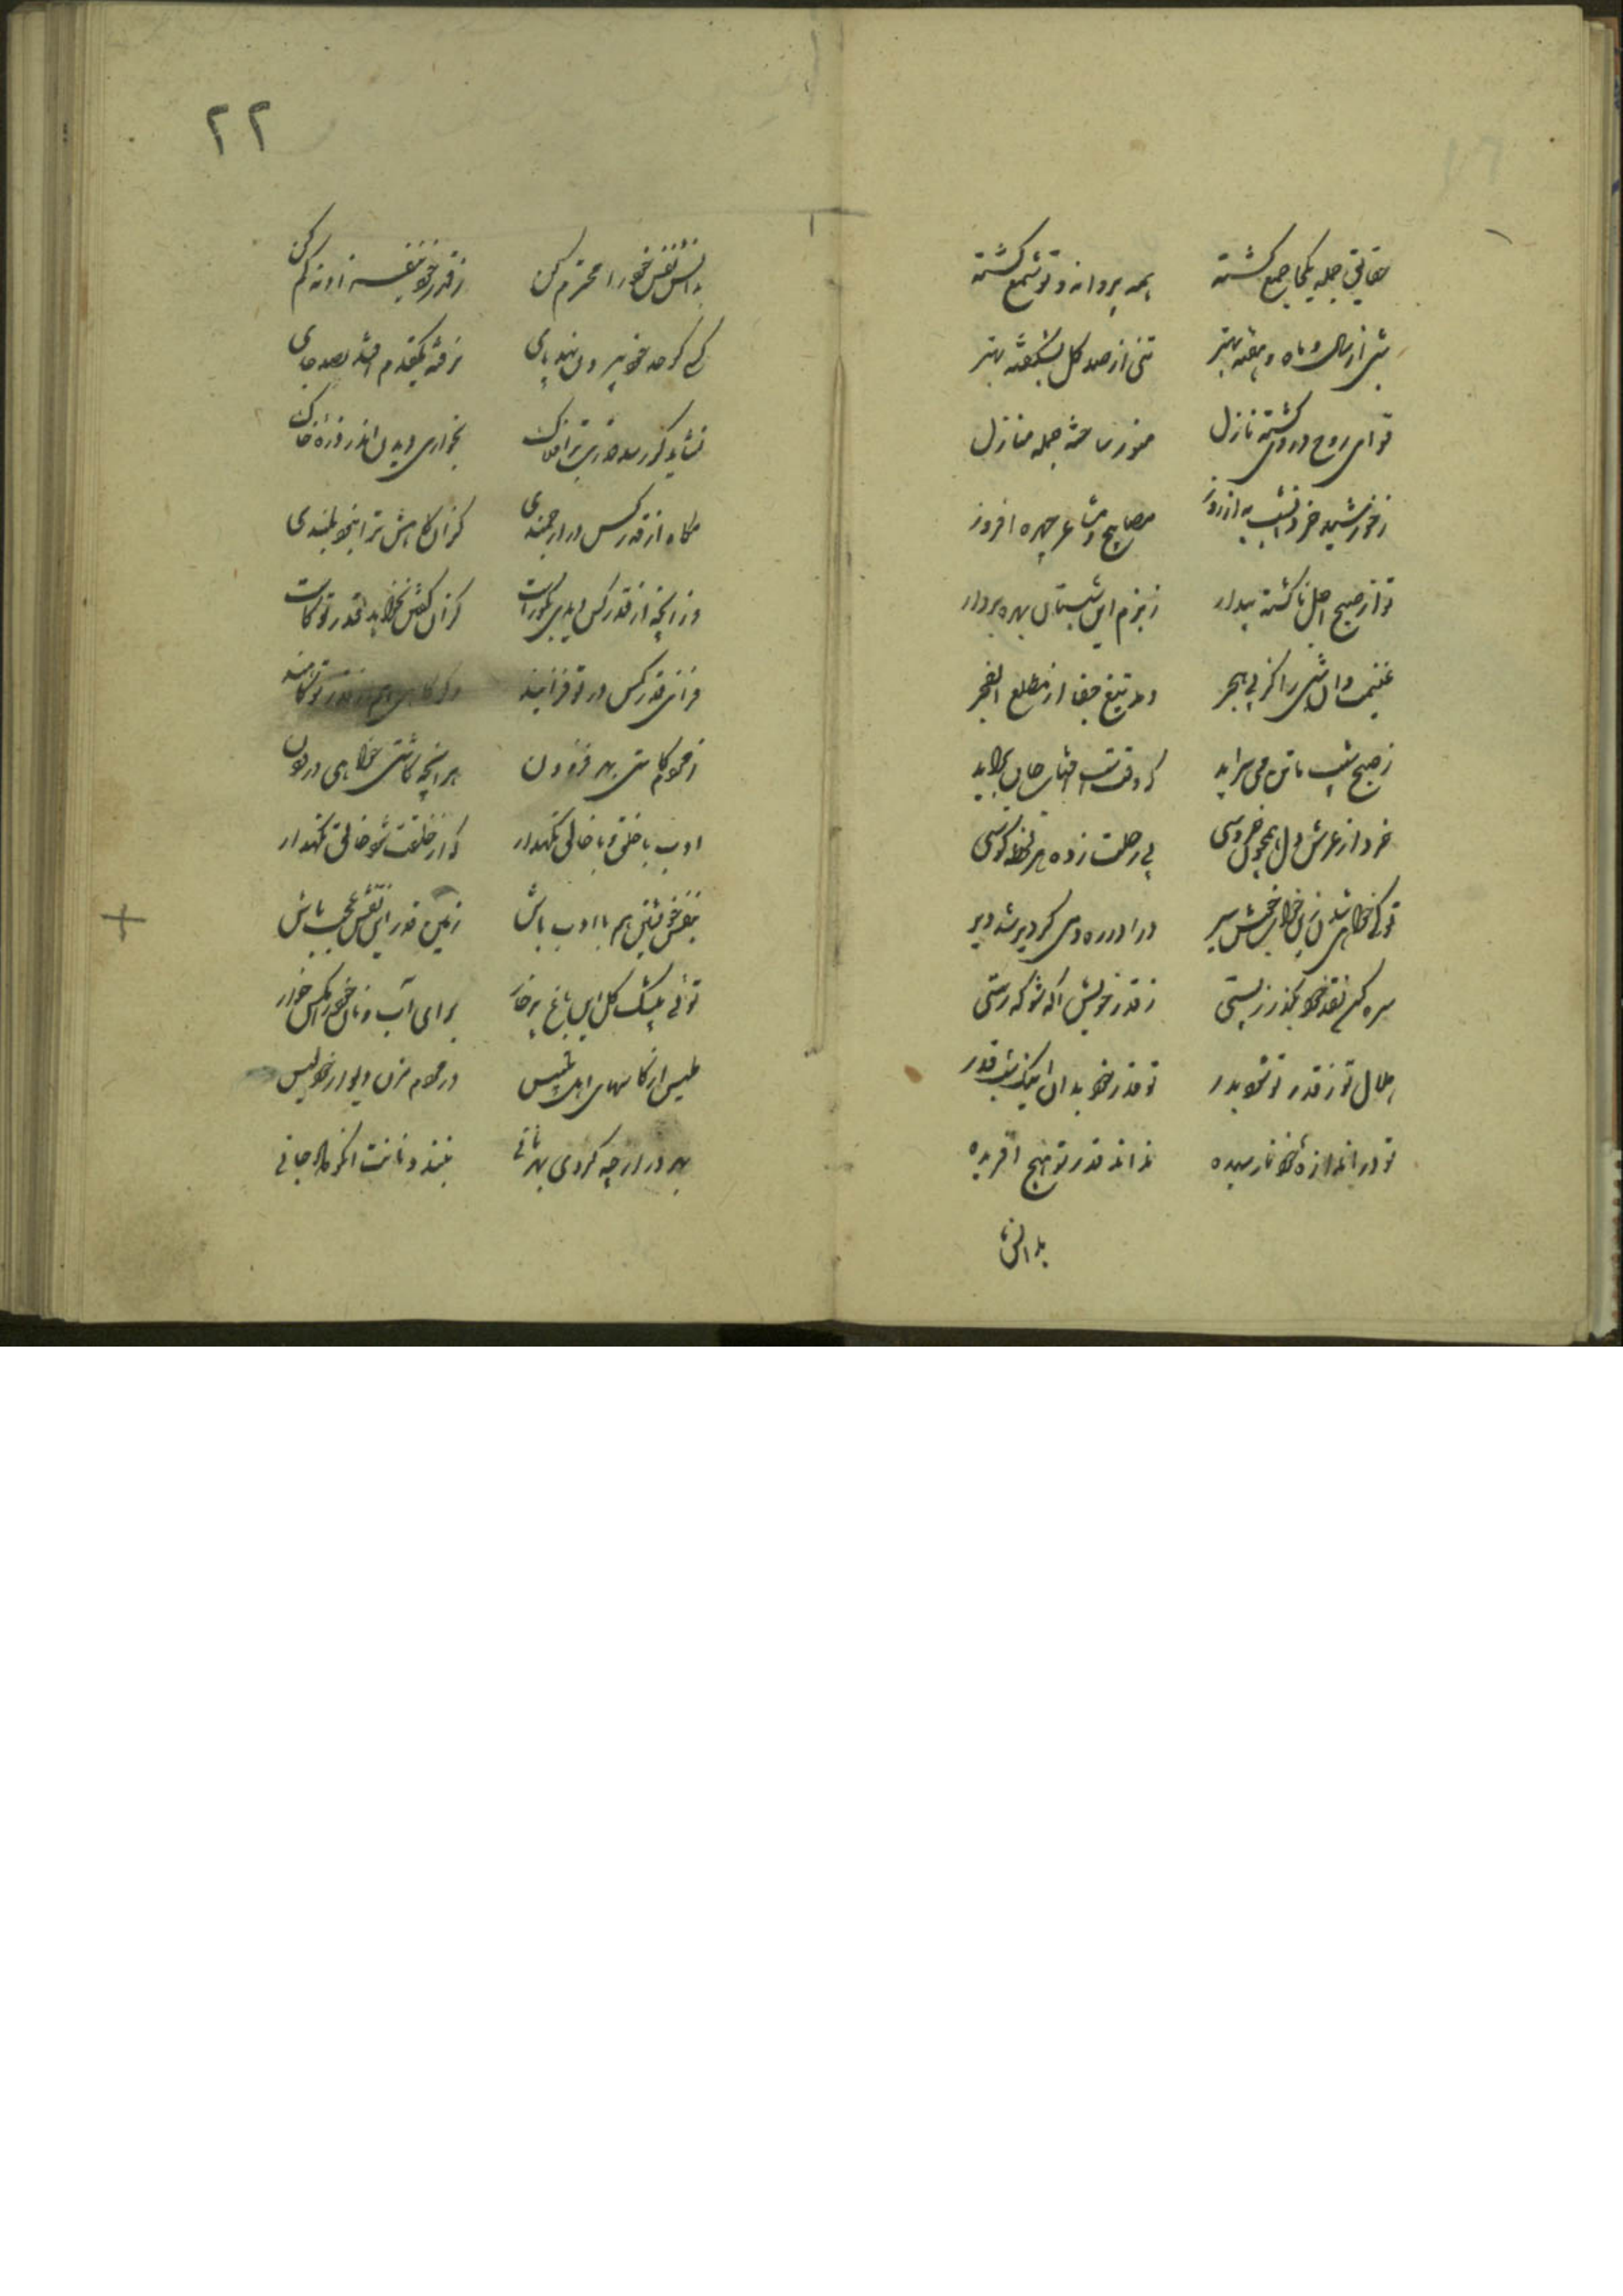 حقایق جمله یکجا جمع گشته همه پروانه و تو شمع گشته
شبی از سال و ماه و هفته بهتر تنی از صد گل بشکفته بهتر
تو ای روح در وی گشته نازل منور ساخته جمله منازل
ز خورشید خرد شب به از روز مصابیح مشاعر چهره افروز
تو از صبح اجل ناگشته بیدار ز بزم این شبستان بهره بردار
غنیمت دان شبی را کز پی هجر دمد تیغ جفا از مطلع الفجر
ز صبح شیب باتن می سراید که وقت شب جان براید
خرد از عرش دل همچون خروسی پی رحلت زده هر لحظه کوسی
تو کی خواهی شدن زین خواب خوش سیر درا در ره دمی کردیر شد دیر
سره کن نقد خود بگذر ز پستی ز قدر خویش اگه شو که رستی
هلال تو ز قدر تو شود بدر تو قدر خود بدان اینک شب قدر
تو در اندازهٔ خود نارسیده نداند قدر تو هیچ افریده
بدانش
۲۲
بدانش نفس خود را محترم کن ز قدر خود بقدر ذره کم کن
کسی کو حد خود بیرون نهد پای نرفته یکقدم افتد بصد جای
نشاید کز رسد قدرت بر افلاک بخواری دیدن اندر ذرهٔ خاک
مکاه از قدر کس در ارجمندی کزان کاهش ترا نبود بلندی
وزانچه از قدر کس دیدی نکو راست کزان کفش نخواهد قدر تو کاست
فزای قدر کس در تو فزایند وگر کاهی هم از قدر تو کاهند
ز خود کاستی بهر فزودن هر انچه کاشتی خواهی درودن
ادب با خلق و با خالق نگهدار که از خلقت شود خالق نگهدار
بنفس خویشتن هم با ادب باش زمین قدر این نفس عجب باش
توئی بیشک گل این باغ پر خار برای آب و نان خود را مکن خوار
ملیس از کاسهای اهل تلبیس درم وام مزن دیوار خود لیس
بهر در از چه کردی بهر نانی بلند و نانت اگر جانی